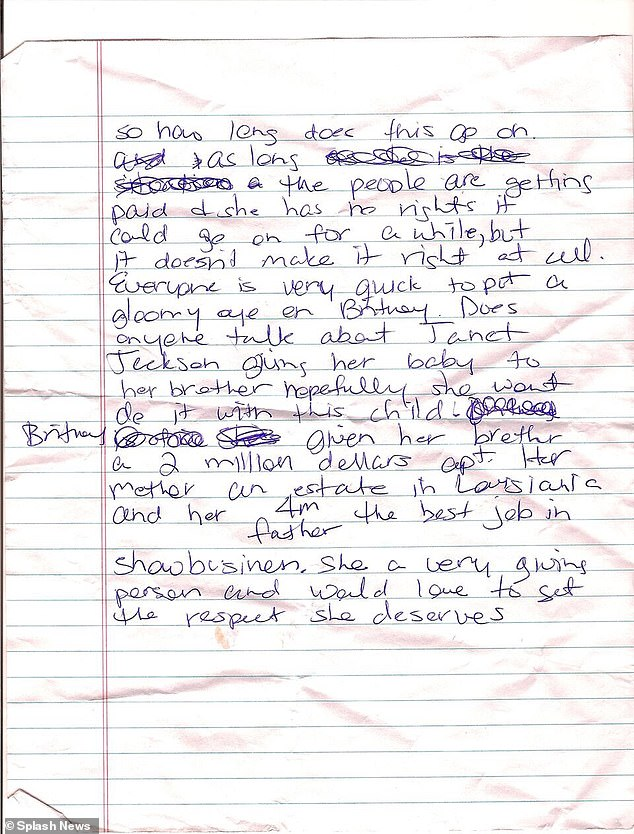 so how long does this go on.
and as long
the people are getting
paid & she has no rights it
could go on for a while, but
it doesn't make it right at all.
Everyone is very quick to put a
gloomy eye on Britney. Does
anyone talk about Janet
Jackson giving her baby to
her brother hopefully she wont
do it with this child.
Britney given her brother
a 2 million dollars apt. Her
mother an estate in Louisiania
and her 4m the best job in
father
showbusiness. She a very giving
person and would love to get
the respect she deserves
© Splash News